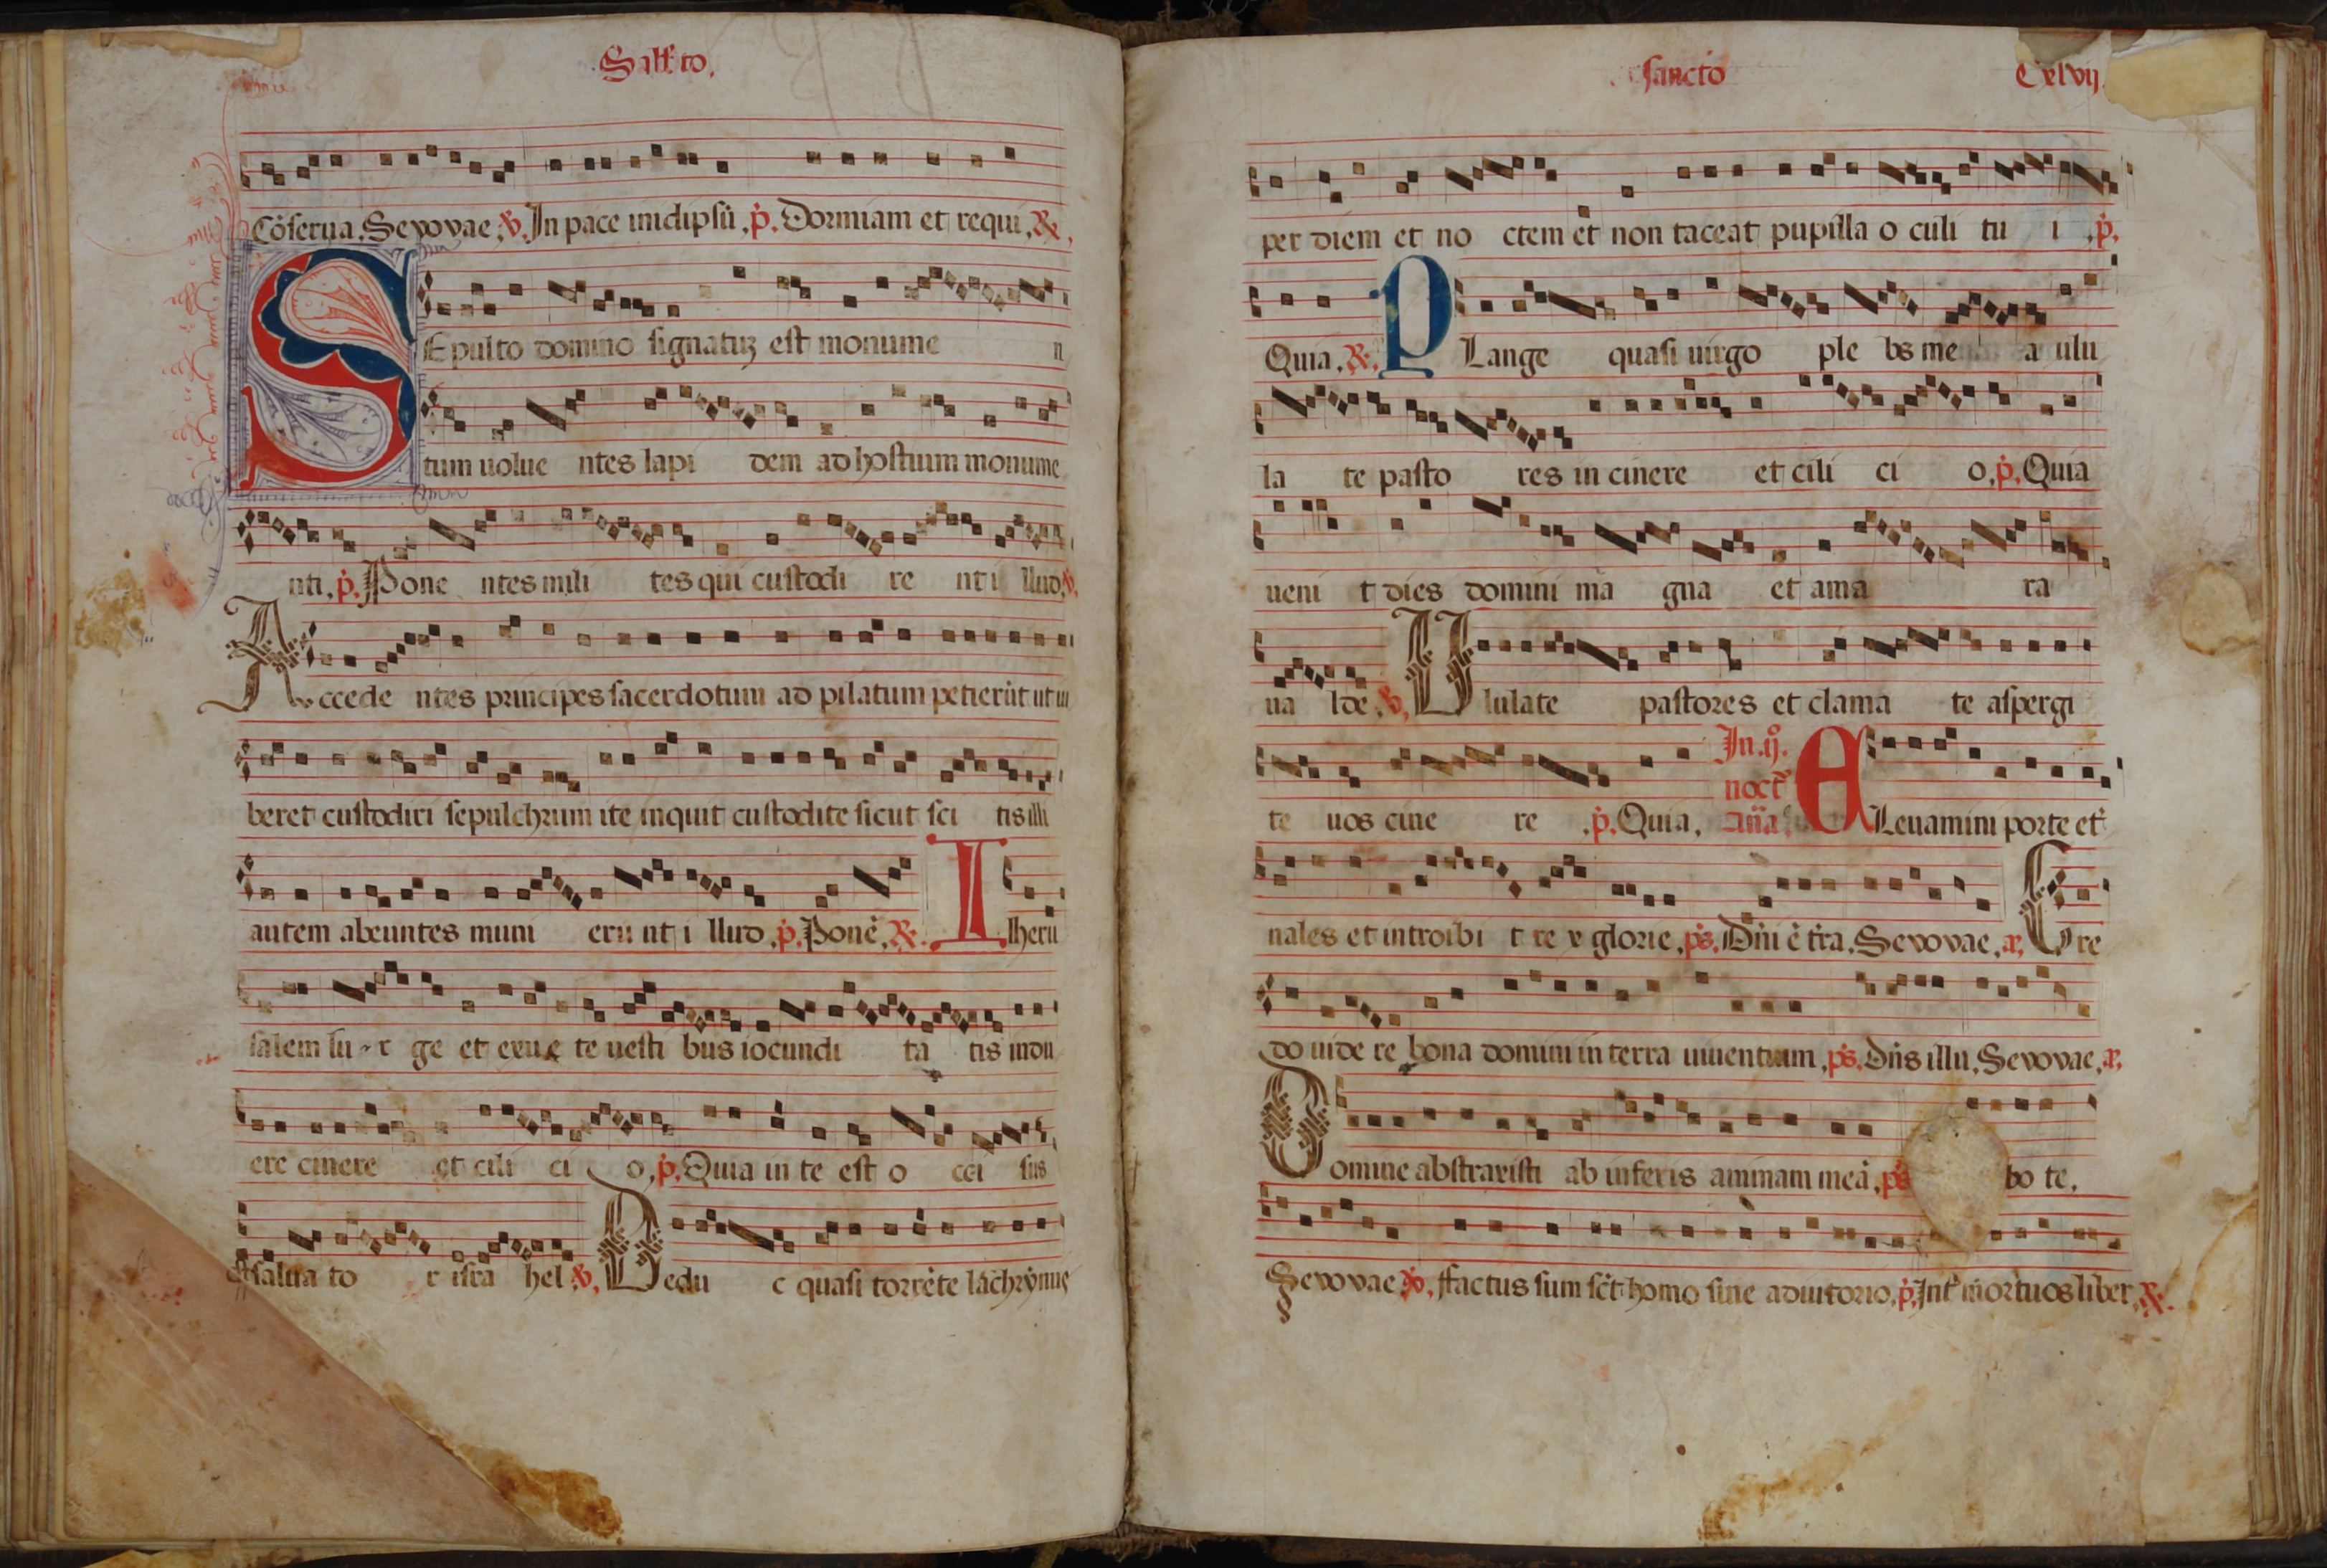 Sabbato.
Cõserua. Seuouae. ℣. In pace inidipsũ. p̣. Dormiam et requi. ℟.
SEpulto domino signatuʒ est monume n
tum uolue ntes lapi dem ad hostium monume
nti. p̣. Pone ntes mili tes qui custodi re nt i llud. ℣.
Accede ntes principes sacerdotum ad pilatum petierũt ut iu
beret custodiri sepulchrum ite inquit custodite sicut sci tis illi
autem abeuntes muni eru nt i llud. p̣. Ponẽ. ℟. Iheru
salem su r ge et exue te uesti bus iocundi ta tis indu
ere cinere et cili ci o. p̣. Quia in te est o cci sus
salua to r isra hel ℣. Dedu c quasi torrẽte lachrymas
sancto Cxlvij.
per diem et no ctem et non taceat pupilla o culi tu i. p̣.
Quia. ℟. PLange quasi uirgo ple bs me a ulu
la te pasto res in cinere et cili ci o. p̣. Quia
ueni t dies domini ma gna et ama ra
ua lde. ℣. Ululate pastores et clama te aspergi
te uos cine re p̣. Quia. In .ij. noct̃ añã ELeuamini porte et̃
nales et introibi t re x glorie. ps̃. Dñi ẽ t̃ra. Seuouae. a. Cre
do uide re bona domini in terra uiuentium. ps̃. Dñs illu. Seuouae. a.
Domine abstraxisti ab inferis animam meã. ps̃ bo te.
Seuouae ℣. ffactus sum sc̃t homo sine adiutorio. p̣. Int̃ mortuos liber. ℟.